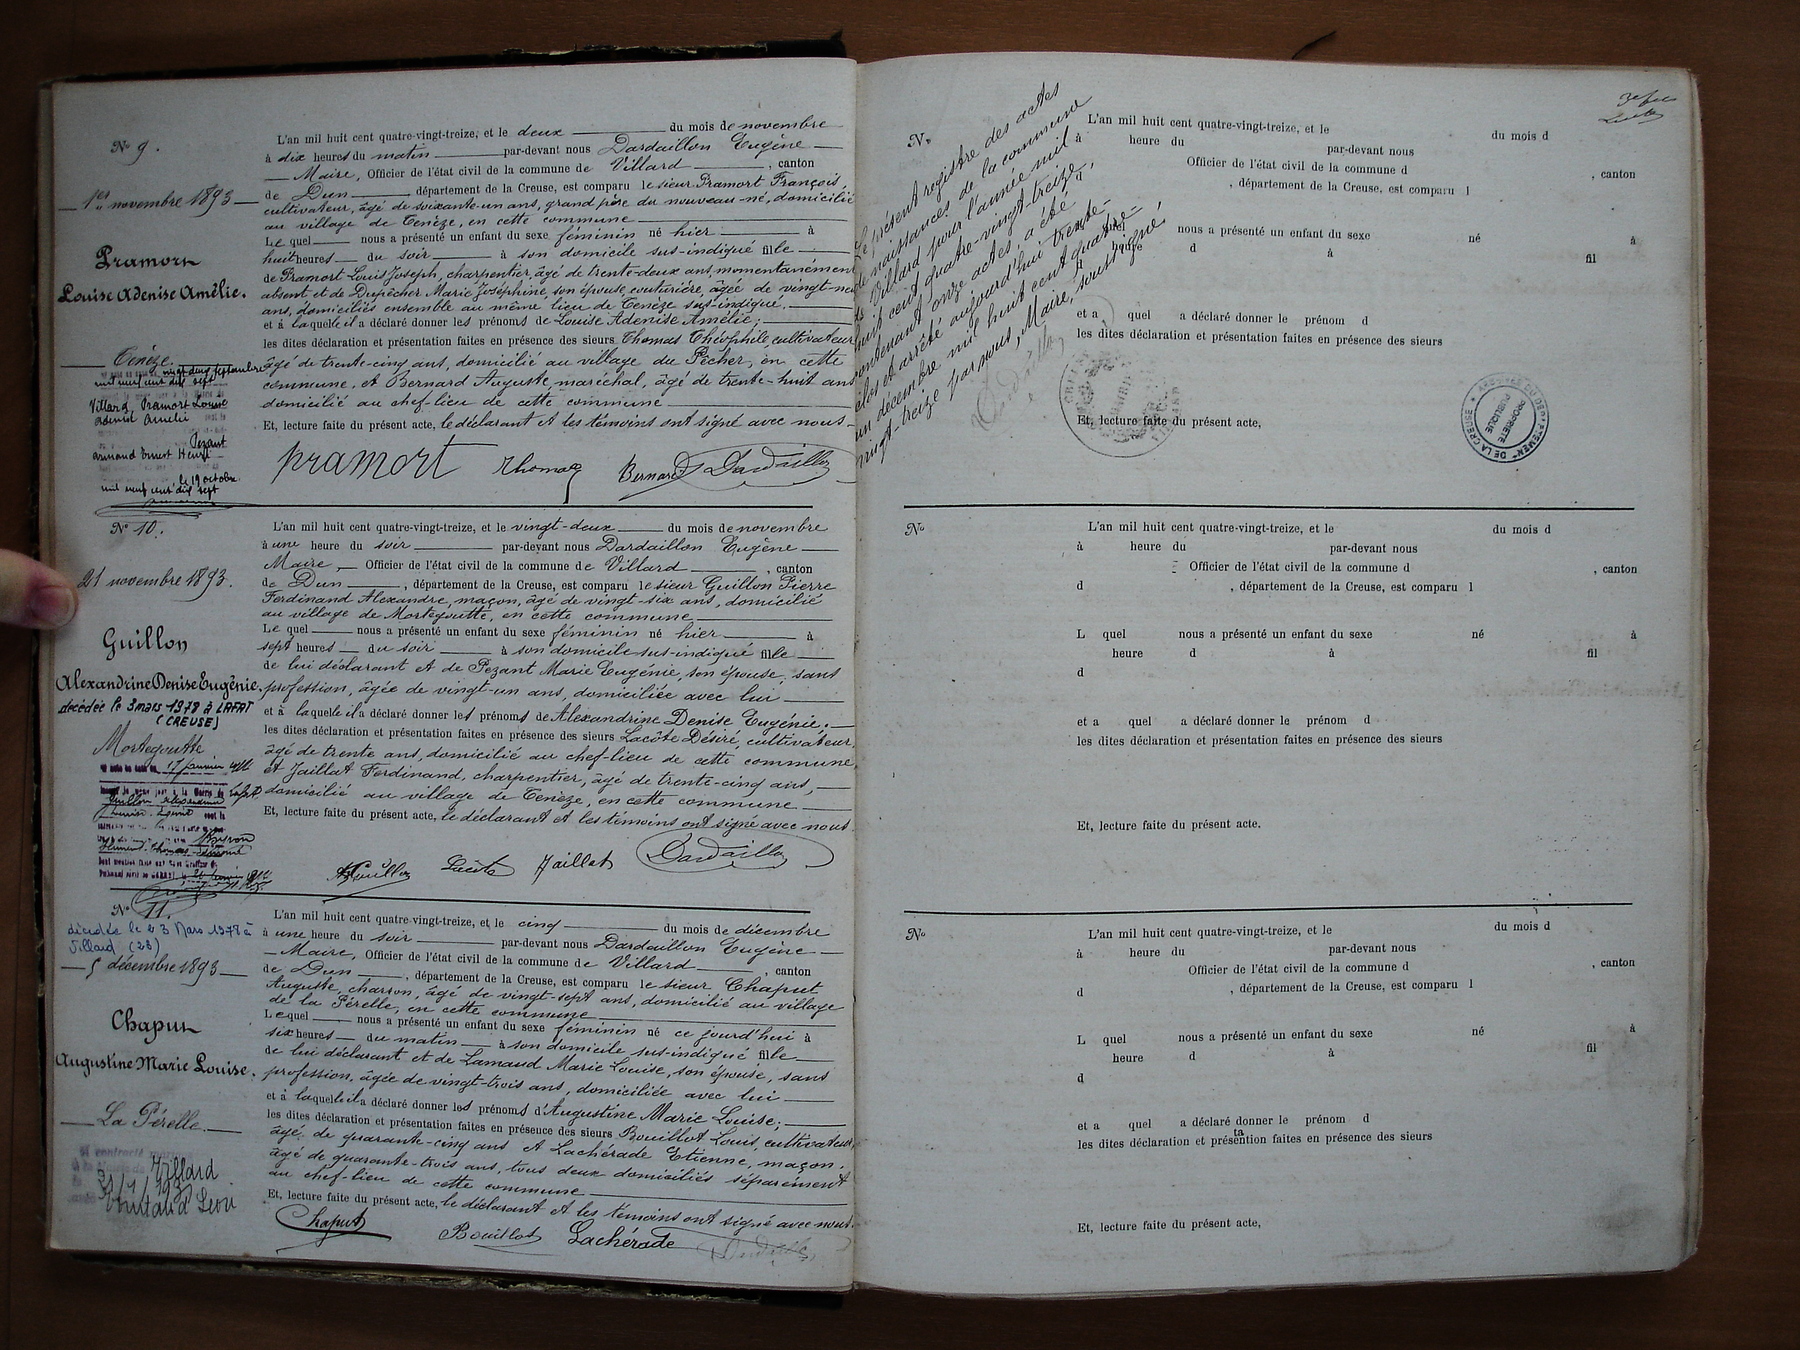 Nº 9.
1er novembre 1893
Pramort
Louise Adenise Amélie.
Tenèze
vingt deux septembre
mil neuf cent dix sept
Villard, Pramort Louise
Adenise Amélie
Pezant
Armand Ernest Henri
le 19 octobre
mil neuf cent dix sept
L'an mil huit cent quatre-vingt-treize, et le deux du mois de novembre
à dix heures du matin par-devant nous Dardaillon Eugène
Maire, Officier de l'état civil de la commune de Villard, canton
de Dun, département de la Creuse, est comparu le sieur Pramort François,
cultivateur, âgé de soixante-un ans, grand père du nouveau-né, domicilié
au village de Tenèze, en cette commune
Le quel nous a présenté un enfant du sexe féminin né hier à
huit heures du soir à son domicile sus-indiqué fille
de Pramort Louis Joseph, charpentier, âgé de trente-deux ans, momentanément
absent et de Dupêcher Marie Joséphine, son épouse, couturière, âgée de vingt-neuf
ans, domiciliés ensemble au même lieu de Tenèze sus-indiqué.
et à laquelle il a déclaré donner les prénoms de Louise Adenise Amélie;
les dites déclaration et présentation faites en présence des sieurs Thomas Théophile cultivateur
âgé de trente-cinq ans, domicilié au village du Pêcher, en cette
commune, et Bernard Auguste, maréchal, âgé de trente-huit ans
domicilié au chef-lieu de cette commune
Et, lecture faite du présent acte, le déclarant et les témoins ont signé avec nous
Pramort Thomas Bernard Dardaillon
Nº 10.
21 novembre 1893.
Guillon
Alexandrine Denise Eugénie.
décédée le 3 mars 1978 à LAFAT
(CREUSE)
Mortegoutte
17 janvier
Guillon Alexandrine
L'an mil huit cent quatre-vingt-treize, et le vingt-deux du mois de novembre
à une heure du soir par-devant nous Dardaillon Eugène
Maire, Officier de l'état civil de la commune de Villard, canton
de Dun, département de la Creuse, est comparu le sieur Guillon Pierre
Ferdinand Alexandre, maçon, âgé de vingt-six ans, domicilié
au village de Mortegoutte, en cette commune
Le quel nous a présenté un enfant du sexe féminin né hier à
sept heures du soir à son domicile sus-indiqué fille
de lui déclarant et de Pezant Marie Eugénie, son épouse, sans
profession, âgée de vingt-un ans, domiciliée avec lui
et à laquelle il a déclaré donner les prénoms de Alexandrine Denise Eugénie;
les dites déclaration et présentation faites en présence des sieurs Lacôte Désiré, cultivateur,
âgé de trente ans, domicilié au chef-lieu de cette commune
et Jaillat Ferdinand, charpentier, âgé de trente-cinq ans,
domicilié au village de Tenèze, en cette commune
Et, lecture faite du présent acte, le déclarant et les témoins ont signé avec nous
Guillon Lacôte Jaillat Dardaillon
Nº 11.
décédée le 23 Mars 1978 à
Villard (23)
5 décembre 1893
Chaput
Augustine Marie Louise.
La Pérelle
Villard
L'an mil huit cent quatre-vingt-treize, et le cinq du mois de décembre
à une heure du soir par-devant nous Dardaillon Eugène
Maire, Officier de l'état civil de la commune de Villard, canton
de Dun, département de la Creuse, est comparu le sieur Chaput
Auguste, charron, âgé de vingt-sept ans, domicilié au village
de la Pérelle, en cette commune
Le quel nous a présenté un enfant du sexe féminin né ce jourd'hui à
six heures du matin à son domicile sus-indiqué fille
de lui déclarant et de Lamaud Marie Louise, son épouse, sans
profession, âgée de vingt-trois ans, domiciliée avec lui
et à laquelle il a déclaré donner les prénoms d'Augustine Marie Louise;
les dites déclaration et présentation faites en présence des sieurs Bouillot Louis, cultivateur,
âgé de quarante-cinq ans et Lachérade Etienne, maçon,
âgé de quarante-trois ans, tous deux domiciliés séparément
au chef-lieu de cette commune
Et, lecture faite du présent acte, le déclarant et les témoins ont signé avec nous.
Chaput Bouillot Lachérade Dardaillon
Le présent registre des actes
de naissances de la commune
de Villard pour l'année mil
huit cent quatre-vingt-treize,
contenant onze actes, a été
clos et arrêté aujourd'hui trente-
un décembre mil huit cent quatre-
vingt-treize par nous, Maire, soussigné,
Dardaillon
Nº
L'an mil huit cent quatre-vingt-treize, et le du mois d
à heure du par-devant nous
Officier de l'état civil de la commune d , canton
, département de la Creuse, est comparu l
nous a présenté un enfant du sexe né à
heure d à fil
et a quel a déclaré donner le prénom d
les dites déclaration et présentation faites en présence des sieurs
Et, lecture faite du présent acte,
ARCHIVES DU DEPARTEMENT DE LA CREUSE
PROPRIETE PUBLIQUE
Nº
L'an mil huit cent quatre-vingt-treize, et le du mois d
à heure du par-devant nous
Officier de l'état civil de la commune d , canton
d , département de la Creuse, est comparu l
L quel nous a présenté un enfant du sexe né à
heure d à fil
d
et a quel a déclaré donner le prénom d
les dites déclaration et présentation faites en présence des sieurs
Et, lecture faite du présent acte.
Nº
L'an mil huit cent quatre-vingt-treize, et le du mois d
à heure du par-devant nous
Officier de l'état civil de la commune d , canton
d , département de la Creuse, est comparu l
L quel nous a présenté un enfant du sexe né à
heure d à fil
d
et a quel a déclaré donner le prénom d
les dites déclaration et présentation faites en présence des sieurs
Et, lecture faite du présent acte,